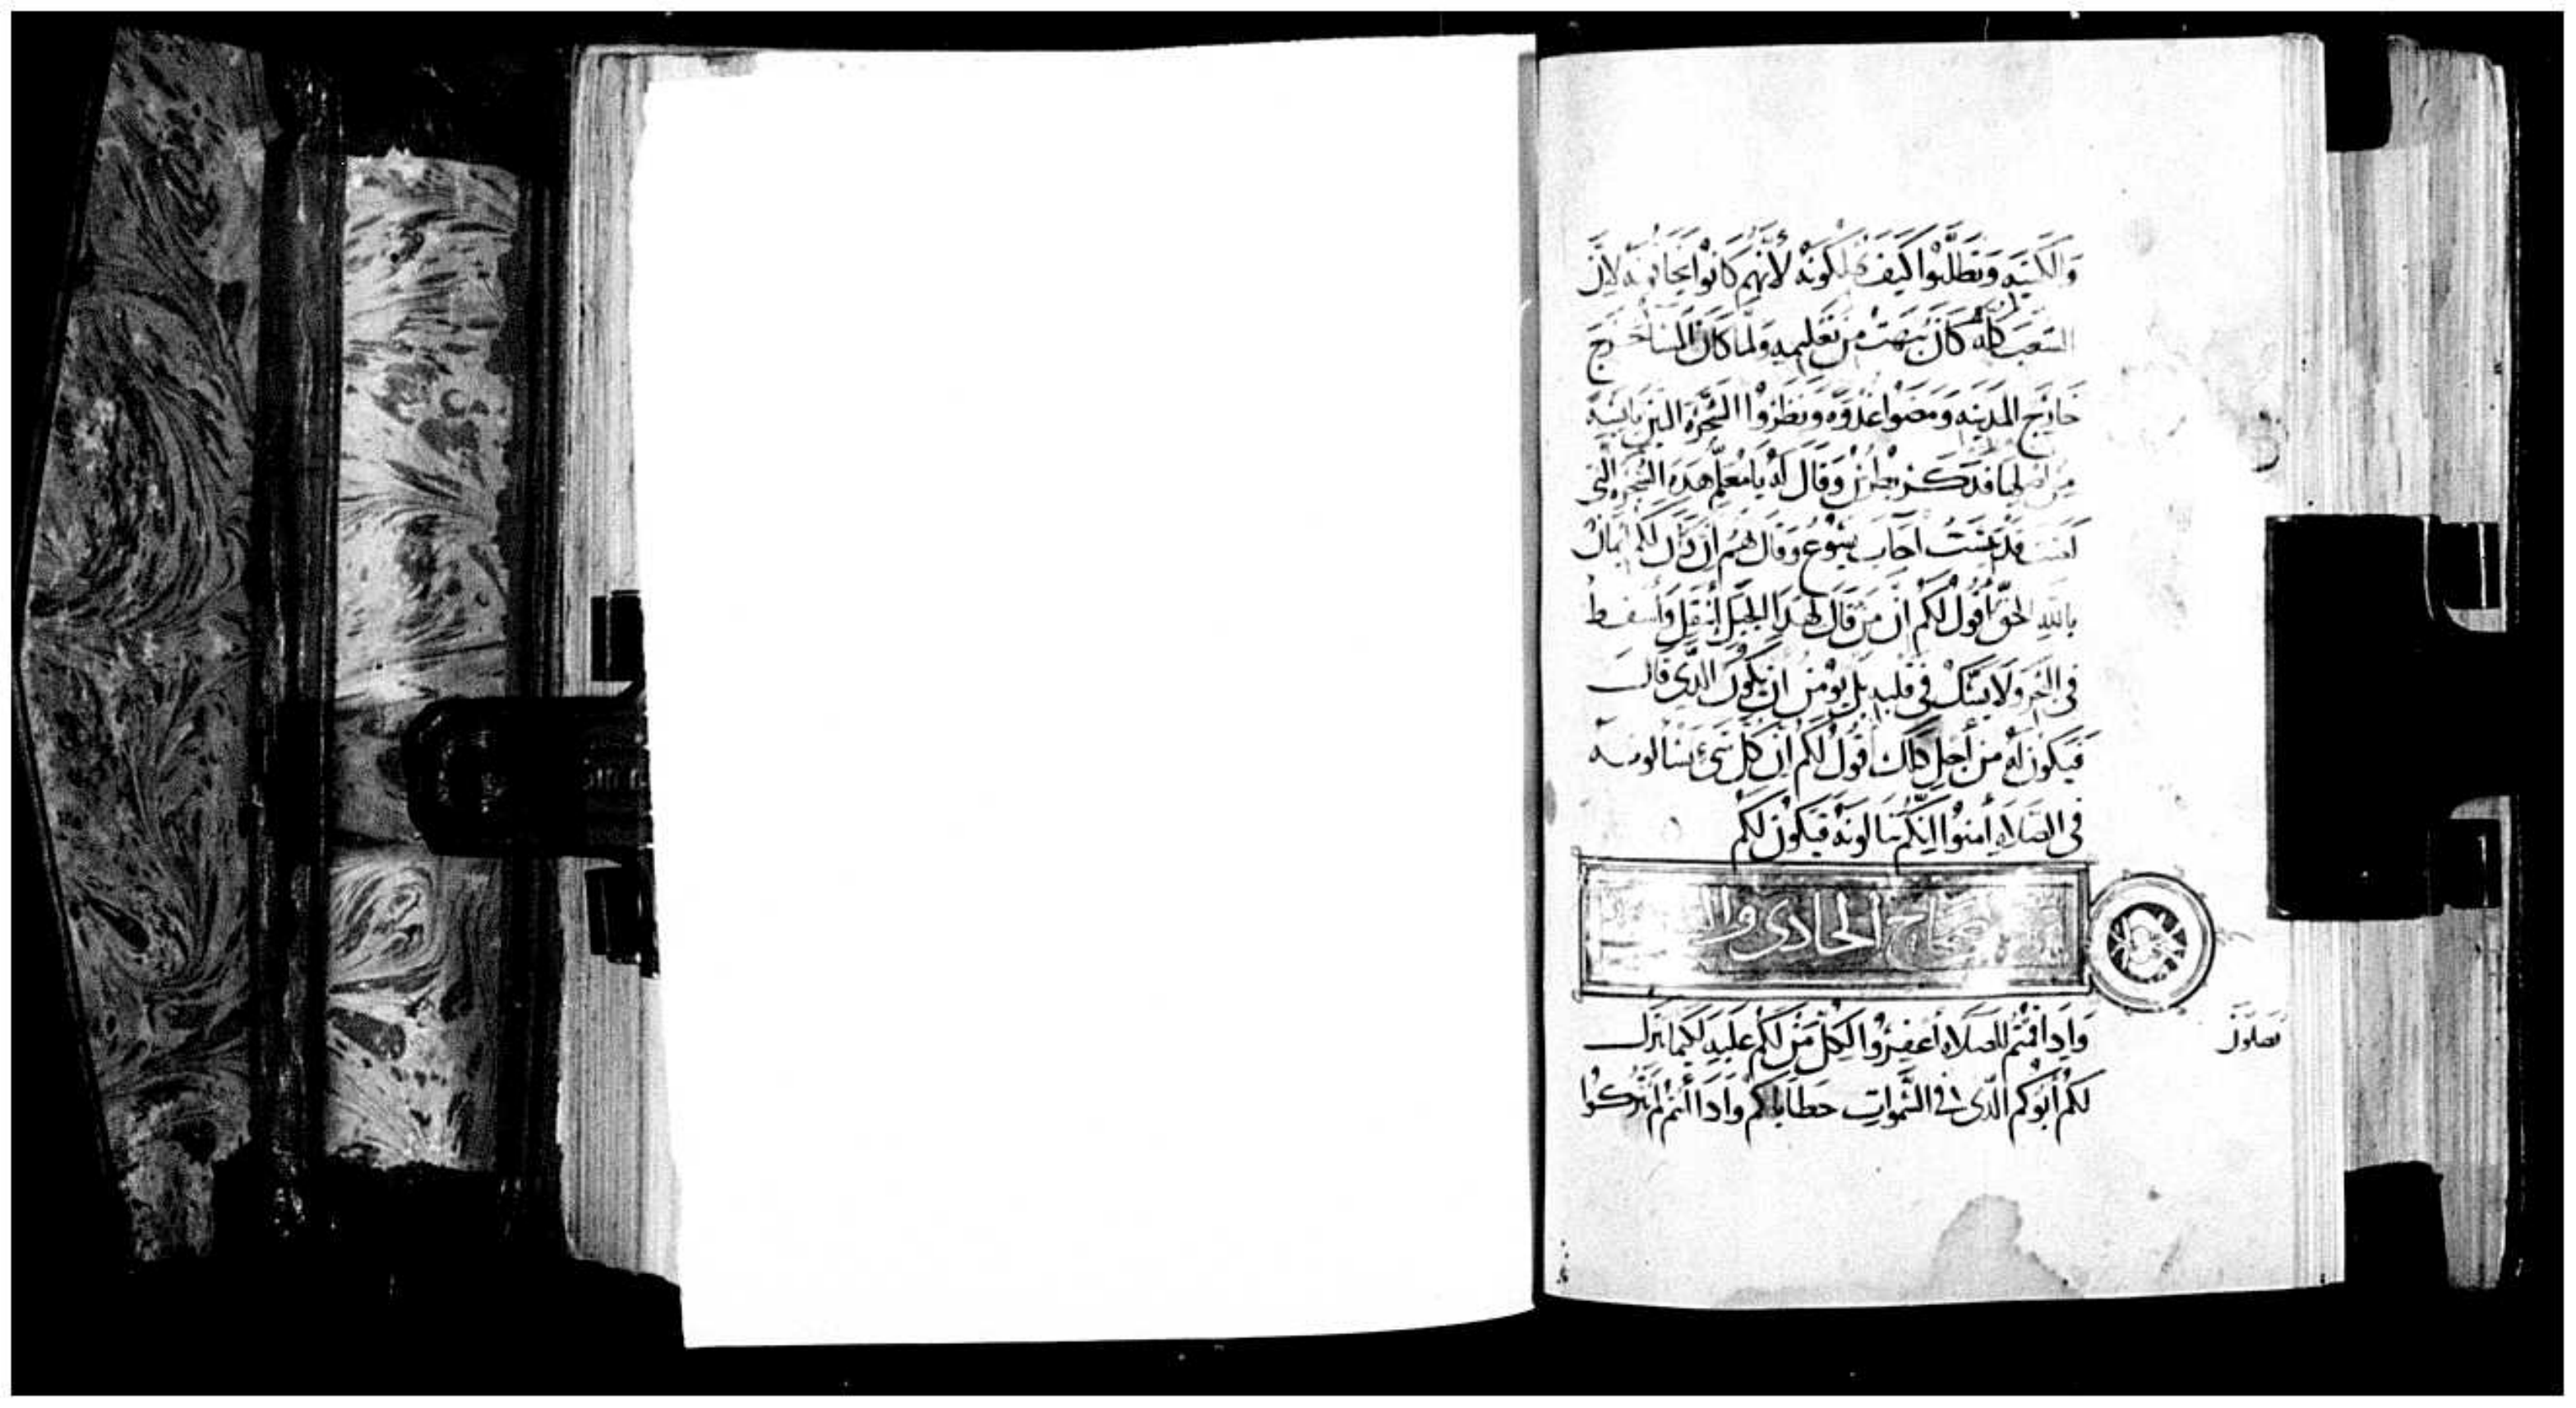 والكتبه وتطلبوا كيف يهلكونه لأنهم كانوا يخافونه لان
الشعب كله كان يبهت من تعليمه ولما كان المسا خرج
خارج المدينه ومضوا غدوه ونظروا الشجره التين يابسه
من اصلها فتذكر بطرس وقال له يا معلم هذه الشجره التى
لعنت قد يبست اجاب يسوع وقال لهم ان كان لكم إيمان
بالله الحق أقول لكم ان من قال لهدا الجبل أنتقل وأسقط
فى البحر ولا يشك في قلبه بل يؤمن ان يكون الدى قال
فيكون له من أجل داك اقول لكم ان كل شئ تسالونه
فى الصلاه امنوا انكم تنالونه فيكون لكم
الاصحاح الحادى وال
وادا قمتم للصلاه أغفروا لكل من لكم عليه لكيما يترك
تصلون
لكم أبوكم الدى فى السموات خطاياكم وادا أنتم لم تتركوا